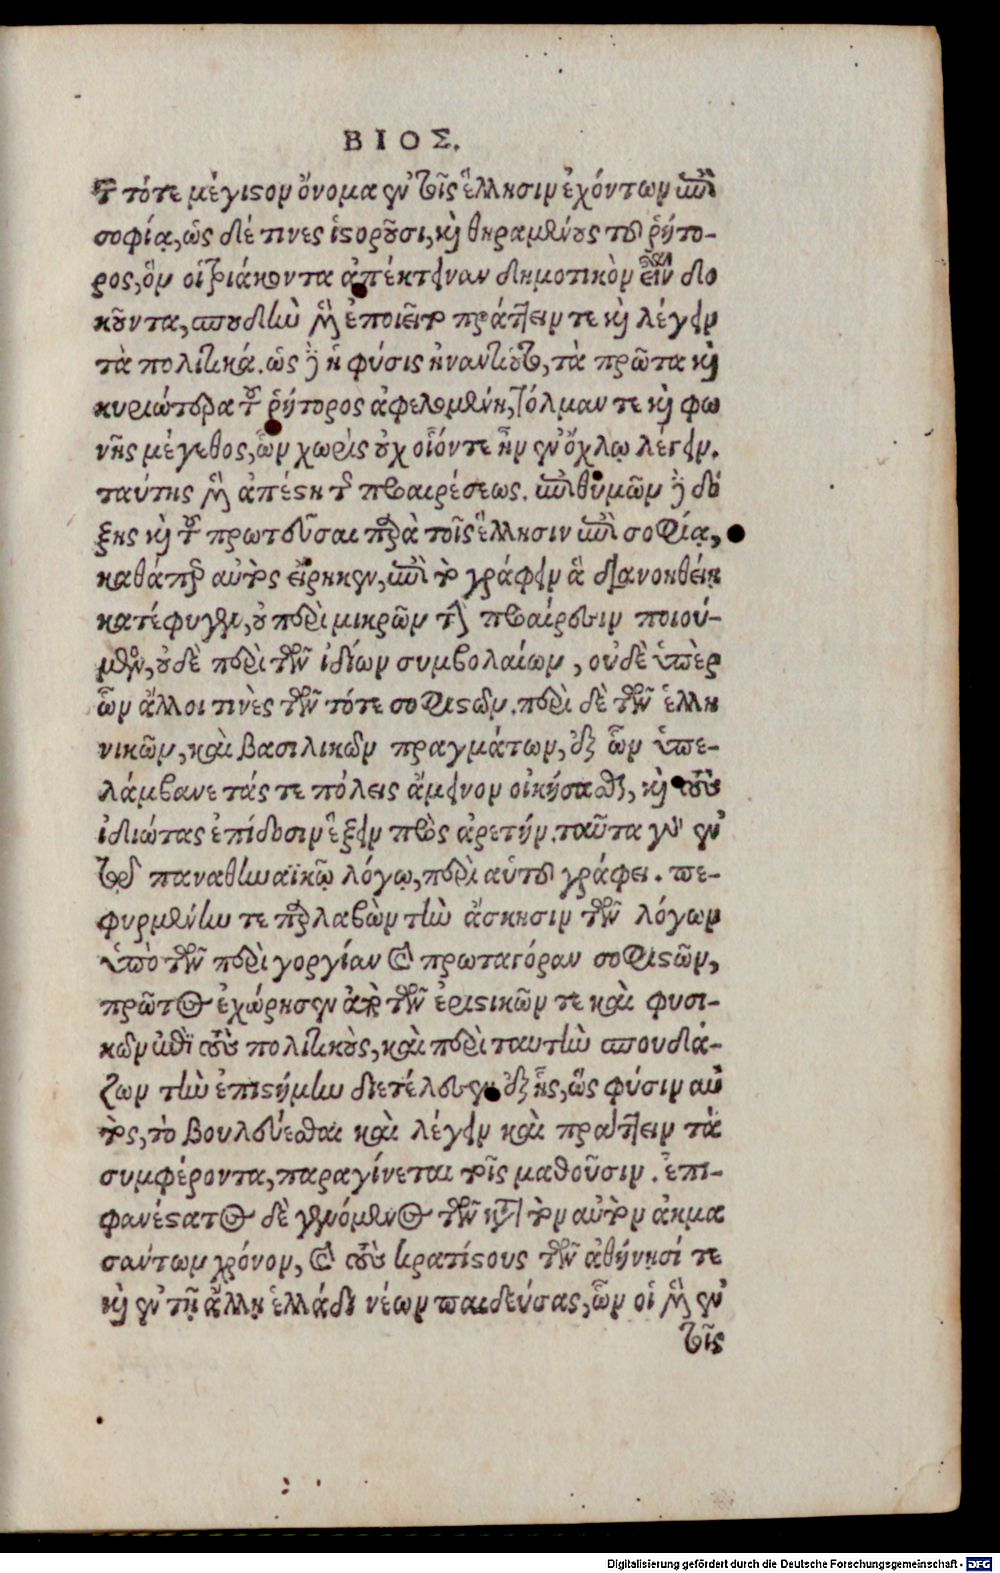 ΒΙΟΣ.
τῶν τότε μέγιστον ὄνομα ἐν τοῖς ἕλλησιν ἐχόντων ἐπὶ
σοφίᾳ, ὡς δέ τινες ἱστοροῦσι, καὶ θηραμένους τοῦ ῥήτο-
ρος, ὃν οἱ τριάκοντα ἀπέκτειναν δημοτικὸν εἶναι δο
κοῦντα, σπουδὴν μὲν ἐποιεῖτο πράττειν τε καὶ λέγειν
τὰ πολιτικά. ὡς δὲ ἡ φύσις ἠναντιοῦτο, τὰ πρῶτα καὶ
κυριώτερα τοῦ ῥήτορος ἀφελομένη, τόλμαν τε καὶ φω
νῆς μέγεθος, ὧν χωρὶς οὐχ οἷόντε ἦν ἐν ὄχλῳ λέγειν.
ταύτης μὲν ἀπέστη τῆς προαιρέσεως. ἐπιθυμῶν δὲ δό
ξης καὶ τοῦ πρωτεῦσαι παρὰ τοῖς ἕλλησιν ἐπὶ σοφίᾳ,
καθάπερ αὐτὸς εἴρηκεν, ἐπὶ τὸ γράφειν ἃ διανοηθείη
κατέφυγεν, οὐ περὶ μικρῶν τὴν προαίρεσιν ποιού-
μενος, οὐδὲ περὶ τῶν ἰδίων συμβολαίων, οὐδὲ ὑπὲρ
ὧν ἄλλοι τινὲς τῶν τότε σοφιστῶν. περὶ δὲ τῶν ἑλλη
νικῶν, καὶ βασιλικῶν πραγμάτων, ἐξ ὧν ὑπε-
λάμβανε τάς τε πόλεις ἄμεινον οἰκήσασθαι, καὶ τοὺς
ἰδιώτας ἐπίδοσιν ἕξειν πρὸς ἀρετήν. ταῦτα γὰρ ἐν
τῷ παναθηναϊκῷ λόγῳ, περὶ αὑτοῦ γράφει. πε-
φυρμένην τε παραλαβὼν τὴν ἄσκησιν τῶν λόγων
ὑπὸ τῶν περὶ γοργίαν καὶ πρωταγόραν σοφιστῶν,
πρῶτος ἐχώρησεν ἀπὸ τῶν ἐριστικῶν τε καὶ φυσι-
κῶν ἐπὶ τοὺς πολιτικοὺς, καὶ περὶ ταυτὴν σπουδά-
ζων τὴν ἐπιστήμην διετέλεσεν ἐξ ἧς, ὥς φύσιν αὐ
τὸς, τὸ βουλεύεσθαι καὶ λέγειν καὶ πράττειν τὰ
συμφέροντα, παραγίνεται τοῖς μαθοῦσιν. ἐπι-
φανέστατος δὲ γενόμενος τῶν κατὰ τὸν αὐτὸν ἀκμα
σάντων χρόνον, καὶ τοὺς κρατίστους τῶν ἀθήνησί τε
καὶ ἐν τῇ ἄλλῃ ἑλλάδι νέων παιδεύσας, ὧν οἱ μὲν ἐν
τοῖς
Digitalisierung gefördert durch die Deutsche Forschungsgemeinschaft - DFG